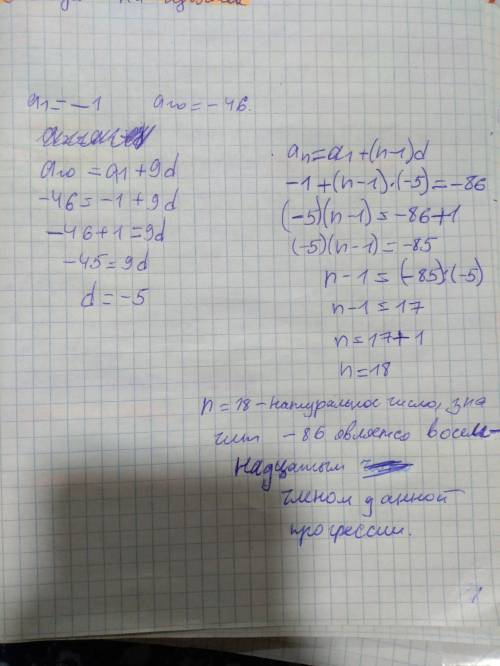 a₁ = -1     a₁₀ = -46.
a₁₀ = a₁ + 9d
-46 = -1 + 9d
-46 + 1 = 9d
-45 = 9d
d = -5
aₙ = a₁ + (n-1)d
-1 + (n-1)·(-5) = -86
(-5)(n-1) = -86+1
(-5)(n-1) = -85
n-1 = (-85):(-5)
n-1 = 17
n = 17+1
n = 18
n = 18 - натуральное число, зна
чит -86 является восем-
надцатым
членом данной
прогрессии.